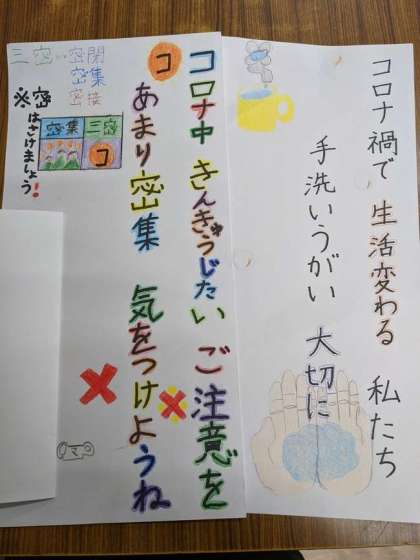 コロナ禍で 生活変わる 私たち
手洗いうがい 大切に
コロナ中 きんきゅうじたい ご注意を
あまり密集 気をつけようね
コ
三密…密閉
密集
密接
※密
はさけましょう!
密集
三密
コ
マ